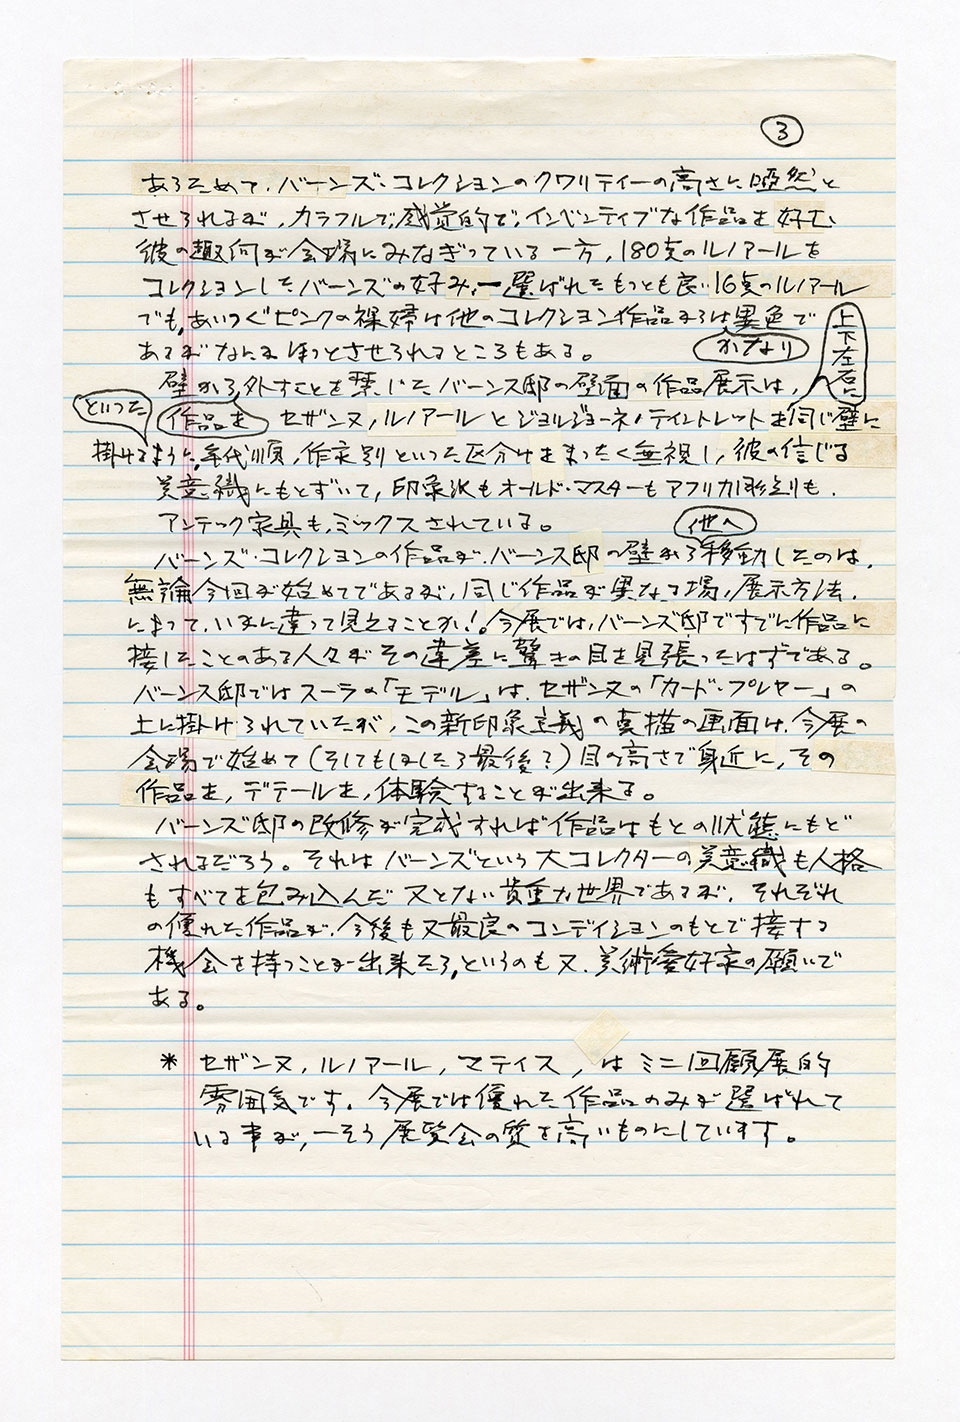 ③
あらためて、バーンズ・コレクションのクワリティーの高さに唖然と
させられるが、カラフルで、感覚的で、インベンティブな作品を好む
彼の趣向が会場にみなぎっている一方、180点のルノアールを
コレクションしたバーンズの好み、一選ばれたもっとも良い16点のルノアール
でも、あいつぐピンクの裸婦は他のコレクション作品からは異色で
かなり
上下左右に
あるがなにかほっとさせられるところもある。
壁から外すことを禁じたバーンズ邸の壁面の作品展示は、
といった
作品を セザンヌ、ルノアールとジョルジョーネ、ティントレットを同じ壁に
掛けるように、年代順、作家別といった区分けをまったく無視し、彼の信じる
美意識にもとずいて、印象派もオールド・マスターもアフリカ彫刻も、
アンテック家具も、ミックスされている。
他へ
バーンズ・コレクションの作品が、バーンズ邸の壁から移動したのは、
無論今回が始めてであるが、同じ作品が異なる場、展示方法、
によって、いかに違って見えることか!。今展では、バーンズ邸ですでに作品に
接したことのある人々がその違差に驚きの目を見張ったはずである。
バーンズ邸ではスーラの「モデル」は、セザンヌの「カード・プレヤー」の
上に掛けられていたが、この新印象主義の点描の画面は、今展の
会場で始めて(そしてもしかしたら最後?)目の高さで身近に、その
作品を、デテールを、体験することが出来る。
バーンズ邸の改修が完成すれば作品はもとの状態にもど
されるだろう。それはバーンズという大コレクターの美意識も人格
もすべてを包み込んだ又とない貴重な世界であるが、それぞれ
の優れた作品が、今後も又最良のコンディションのもとで接する
機会を持つことが出来たら、というのも又、美術愛好家の願いで
ある。
* セザンヌ、ルノアール、マティス、はミニ回顧展的
雰囲気です。今展では優れた作品のみが選ばれて
いる事が、一そう展覧会の質を高いものにしています。